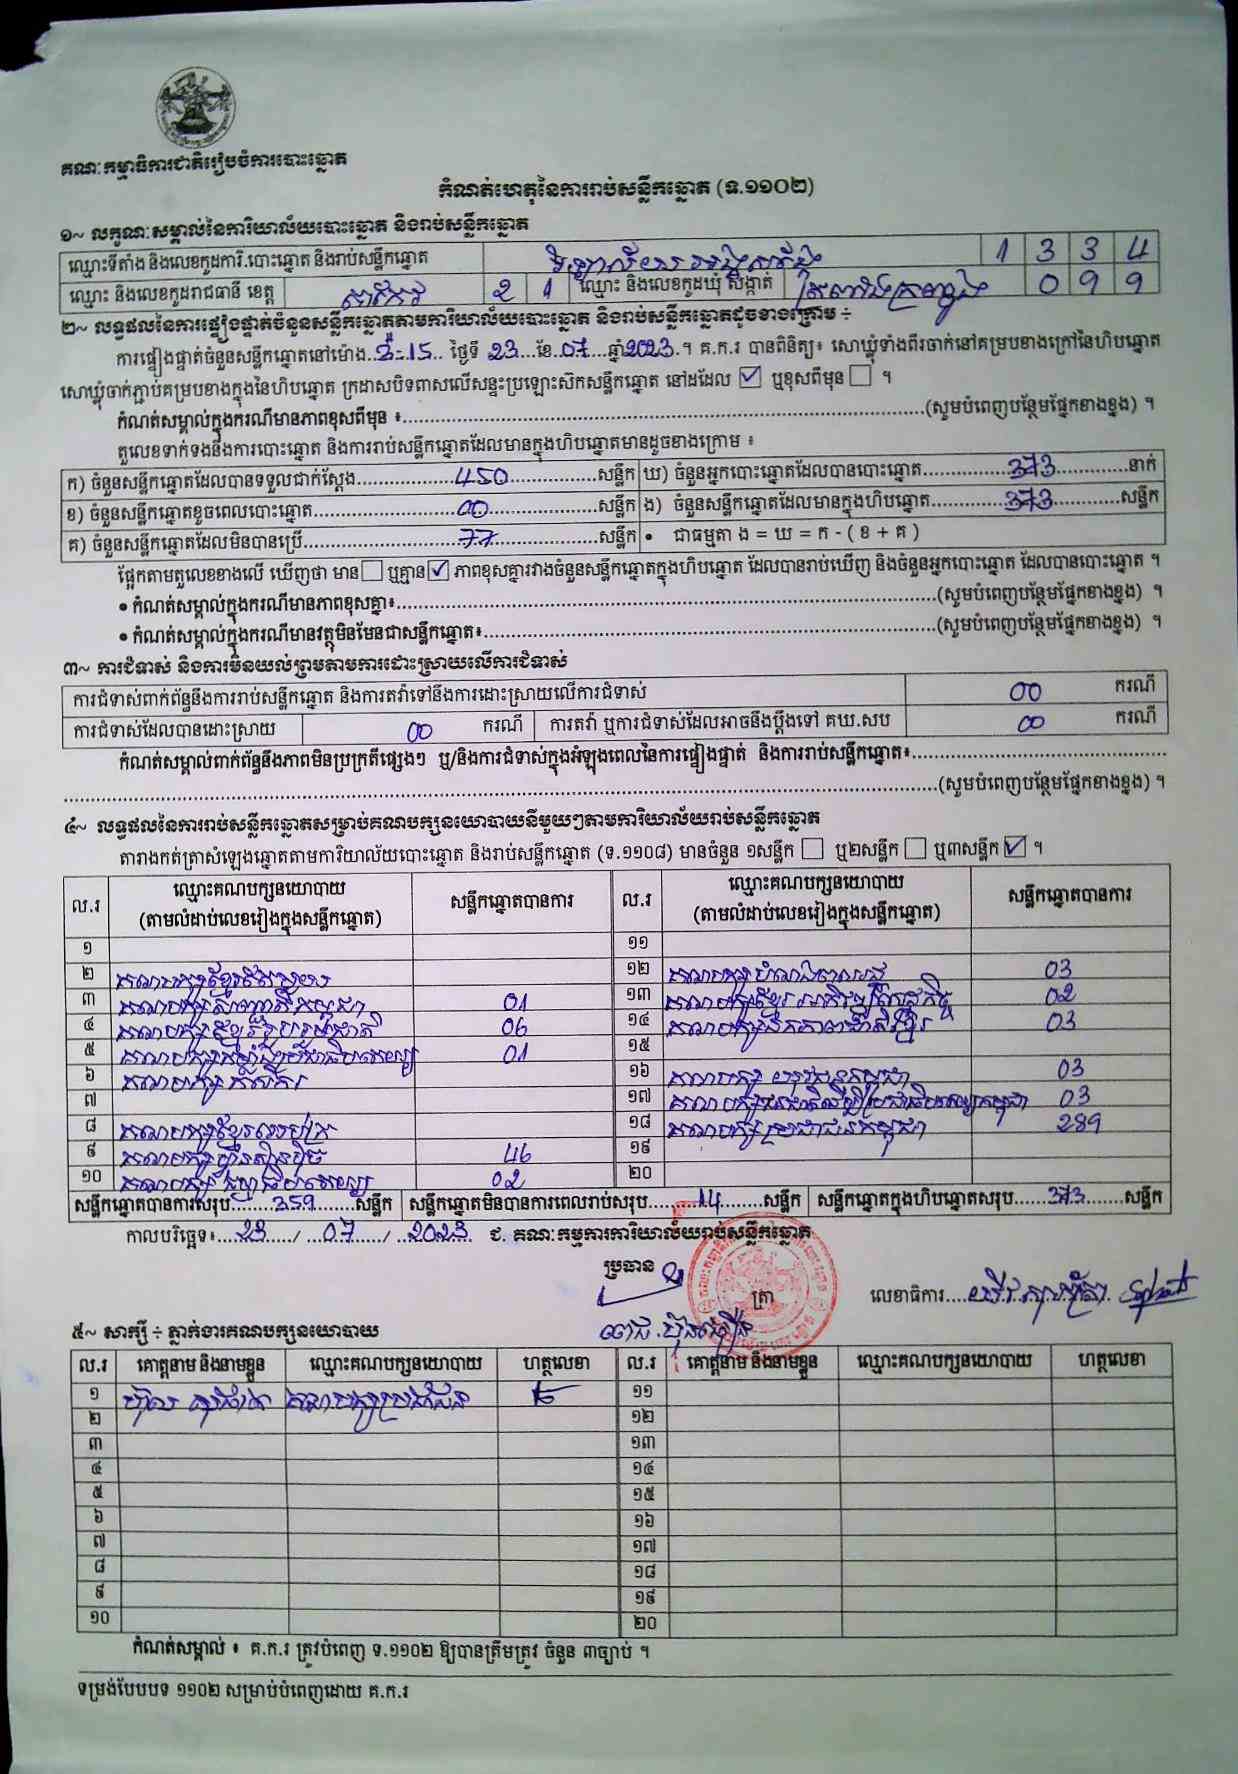 គណៈកម្មាធិការជាតិរៀបចំការបោះឆ្នោត
កំណត់ហេតុនៃការរាប់សន្លឹកឆ្នោត (ទ.១១០២)
១~ លក្ខណៈសម្គាល់នៃការិយាល័យបោះឆ្នោត និងរាប់សន្លឹកឆ្នោត
ឈ្មោះទីតាំង និងលេខកូដការិ.បោះឆ្នោត និងរាប់សន្លឹកឆ្នោត វិទ្យាល័យ 1 3 3 4
ឈ្មោះ និងលេខកូដរាជធានី ខេត្ត តាកែវ 2 1 ឈ្មោះ និងលេខកូដឃុំ សង្កាត់ ត្រពាំងក្រញូង 0 9 9
២~ លទ្ធផលនៃការផ្ទៀងផ្ទាត់ចំនួនសន្លឹកឆ្នោតតាមការិយាល័យបោះឆ្នោត និងរាប់សន្លឹកឆ្នោតដូចខាងក្រោម ÷
ការផ្ទៀងផ្ទាត់ចំនួនសន្លឹកឆ្នោតនៅម៉ោង..3-15.. ថ្ងៃទី 23...ខែ.07...ឆ្នាំ2023.។ គ.ក.រ បានពិនិត្យ៖ សោឃ្លុំទាំងពីរចាក់នៅគម្របខាងក្រៅនៃហិបឆ្នោត
សោឃ្លុំចាក់ភ្ជាប់គម្របខាងក្នុងនៃហិបឆ្នោត ក្រដាសបិទពាសលើសន្ទះប្រឡោះស៊កសន្លឹកឆ្នោត នៅដដែល ☑ ឬខុសពីមុន ☐ ។
កំណត់សម្គាល់ក្នុងករណីមានភាពខុសពីមុន ៖...(សូមបំពេញបន្ថែមផ្នែកខាងខ្នង) ។
តួលេខទាក់ទងនឹងការបោះឆ្នោត និងការរាប់សន្លឹកឆ្នោតដែលមានក្នុងហិបឆ្នោតមានដូចខាងក្រោម ៖
ក) ចំនួនសន្លឹកឆ្នោតដែលបានទទួលជាក់ស្តែង...450...សន្លឹក ឃ) ចំនួនអ្នកបោះឆ្នោតដែលបានបោះឆ្នោត...373...នាក់
ខ) ចំនួនសន្លឹកឆ្នោតខូចពេលបោះឆ្នោត...00...សន្លឹក ង) ចំនួនសន្លឹកឆ្នោតដែលមានក្នុងហិបឆ្នោត...373...សន្លឹក
គ) ចំនួនសន្លឹកឆ្នោតដែលមិនបានប្រើ...77...សន្លឹក • ជាធម្មតា ង = ឃ = ក - ( ខ + គ )
ផ្អែកតាមតួលេខខាងលើ ឃើញថា មាន ☐ ឬគ្មាន ☑ ភាពខុសគ្នារវាងចំនួនសន្លឹកឆ្នោតក្នុងហិបឆ្នោត ដែលបានរាប់ឃើញ និងចំនួនអ្នកបោះឆ្នោត ដែលបានបោះឆ្នោត ។
• កំណត់សម្គាល់ក្នុងករណីមានភាពខុសគ្នា៖...(សូមបំពេញបន្ថែមផ្នែកខាងខ្នង) ។
• កំណត់សម្គាល់ក្នុងករណីមានវត្ថុមិនមែនជាសន្លឹកឆ្នោត៖...(សូមបំពេញបន្ថែមផ្នែកខាងខ្នង) ។
៣~ ការជំទាស់ និងការមិនយល់ព្រមតាមការដោះស្រាយលើការជំទាស់
ការជំទាស់ពាក់ព័ន្ធនឹងការរាប់សន្លឹកឆ្នោត និងការតវ៉ាទៅនឹងការដោះស្រាយលើការជំទាស់ 00 ករណី
ការជំទាស់ដែលបានដោះស្រាយ 00 ករណី ការតវ៉ា ឬការជំទាស់ដែលអាចនឹងប្តឹងទៅ គឃ.សប 00 ករណី
កំណត់សម្គាល់ពាក់ព័ន្ធនឹងភាពមិនប្រក្រតីផ្សេងៗ ឬ/និងការជំទាស់ក្នុងអំឡុងពេលនៃការផ្ទៀងផ្ទាត់ និងការរាប់សន្លឹកឆ្នោត៖...
...(សូមបំពេញបន្ថែមផ្នែកខាងខ្នង) ។
៤~ លទ្ធផលនៃការរាប់សន្លឹកឆ្នោតសម្រាប់គណបក្សនយោបាយនីមួយៗតាមការិយាល័យរាប់សន្លឹកឆ្នោត
តារាងកត់ត្រាសំឡេងឆ្នោតតាមការិយាល័យបោះឆ្នោត និងរាប់សន្លឹកឆ្នោត (ទ.១១០៨) មានចំនួន ១សន្លឹក ☐ ឬ២សន្លឹក ☐ ឬ៣សន្លឹក ☑ ។
ល.រ ឈ្មោះគណបក្សនយោបាយ (តាមលំដាប់លេខរៀងក្នុងសន្លឹកឆ្នោត) សន្លឹកឆ្នោតបានការ ល.រ ឈ្មោះគណបក្សនយោបាយ (តាមលំដាប់លេខរៀងក្នុងសន្លឹកឆ្នោត) សន្លឹកឆ្នោតបានការ
១ ១១
២ គណបក្សខ្មែរ ១២ គណបក្ស 03
៣ គណបក្ស កម្ពុជា 01 ១៣ គណបក្សខ្មែរអភិវឌ្ឍន៍សេដ្ឋកិច្ច 02
៤ គណបក្សខ្មែររួបរួមជាតិ 06 ១៤ គណបក្សឯកភាពជាតិខ្មែរ 03
៥ គណបក្សកម្លាំងប្រជាធិបតេយ្យ 01 ១៥
៦ គណបក្សកសិករ ១៦ គណបក្ស យុវជនកម្ពុជា 03
៧ ១៧ គណបក្សជនជាតិដើមប្រជាធិបតេយ្យកម្ពុជា 03
៨ គណបក្សខ្មែរ ១៨ គណបក្សប្រជាជនកម្ពុជា 289
៩ គណបក្សហ៊្វុនស៊ិនប៉ិច 46 ១៩
១០ គណបក្ស ធម្មាធិបតេយ្យ 02 ២០
សន្លឹកឆ្នោតបានការសរុប...359...សន្លឹក សន្លឹកឆ្នោតមិនបានការពេលរាប់សរុប...14...សន្លឹក សន្លឹកឆ្នោតក្នុងហិបឆ្នោតសរុប...373...សន្លឹក
កាលបរិច្ឆេទ៖...23.../...07.../...2023... ជ. គណៈកម្មការការិយាល័យរាប់សន្លឹកឆ្នោត
ប្រធាន ត្រា លេខាធិការ...
៥~ សាក្សី ÷ ភ្នាក់ងារគណបក្សនយោបាយ
ល.រ គោត្តនាម និងនាមខ្លួន ឈ្មោះគណបក្សនយោបាយ ហត្ថលេខា ល.រ គោត្តនាម និងនាមខ្លួន ឈ្មោះគណបក្សនយោបាយ ហត្ថលេខា
១ គណបក្សប្រជាជន ១១
២ ១២
៣ ១៣
៤ ១៤
៥ ១៥
៦ ១៦
៧ ១៧
៨ ១៨
៩ ១៩
១០ ២០
កំណត់សម្គាល់ ៖ គ.ក.រ ត្រូវបំពេញ ទ.១១០២ ឱ្យបានត្រឹមត្រូវ ចំនួន ៣ច្បាប់ ។
ទម្រង់បែបបទ ១១០២ សម្រាប់បំពេញដោយ គ.ក.រ